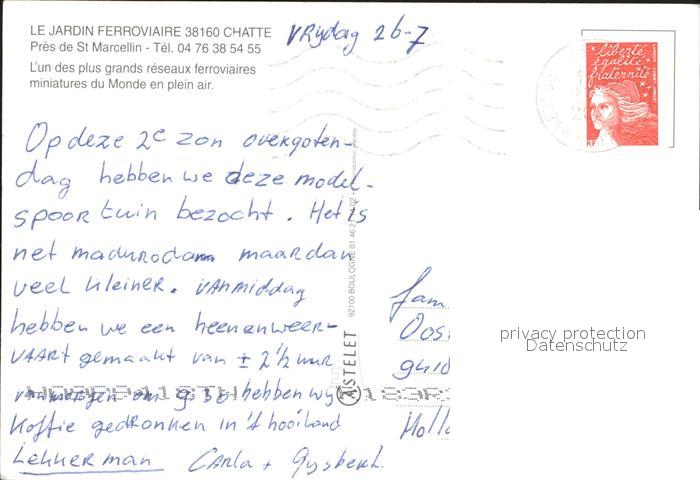 LE JARDIN FERROVIAIRE 38160 CHATTE
Près de St Marcellin - Tél. 04 76 38 54 55
L'un des plus grands réseaux ferroviaires
miniatures du Monde en plein air.
VRydag 26-7
liberté
égalité
fraternité
RF
Op deze 2e zon overgoten-
dag hebben we deze model-
spoor tuin bezocht. Het is
net madurodam maar dan
veel kleiner. vanmiddag
hebben we een heen en weer-
VAART gemaakt van ± 2½ uur
vanmorgen om 9.30 hebben wy
Koffie gedronken in 't hooiland
Lekker man Carla + Gysbert.
92100 BOULOGNE 01 46 2
CASTELET
fam
Oos
guld
Holl
privacy protection
Datenschutz